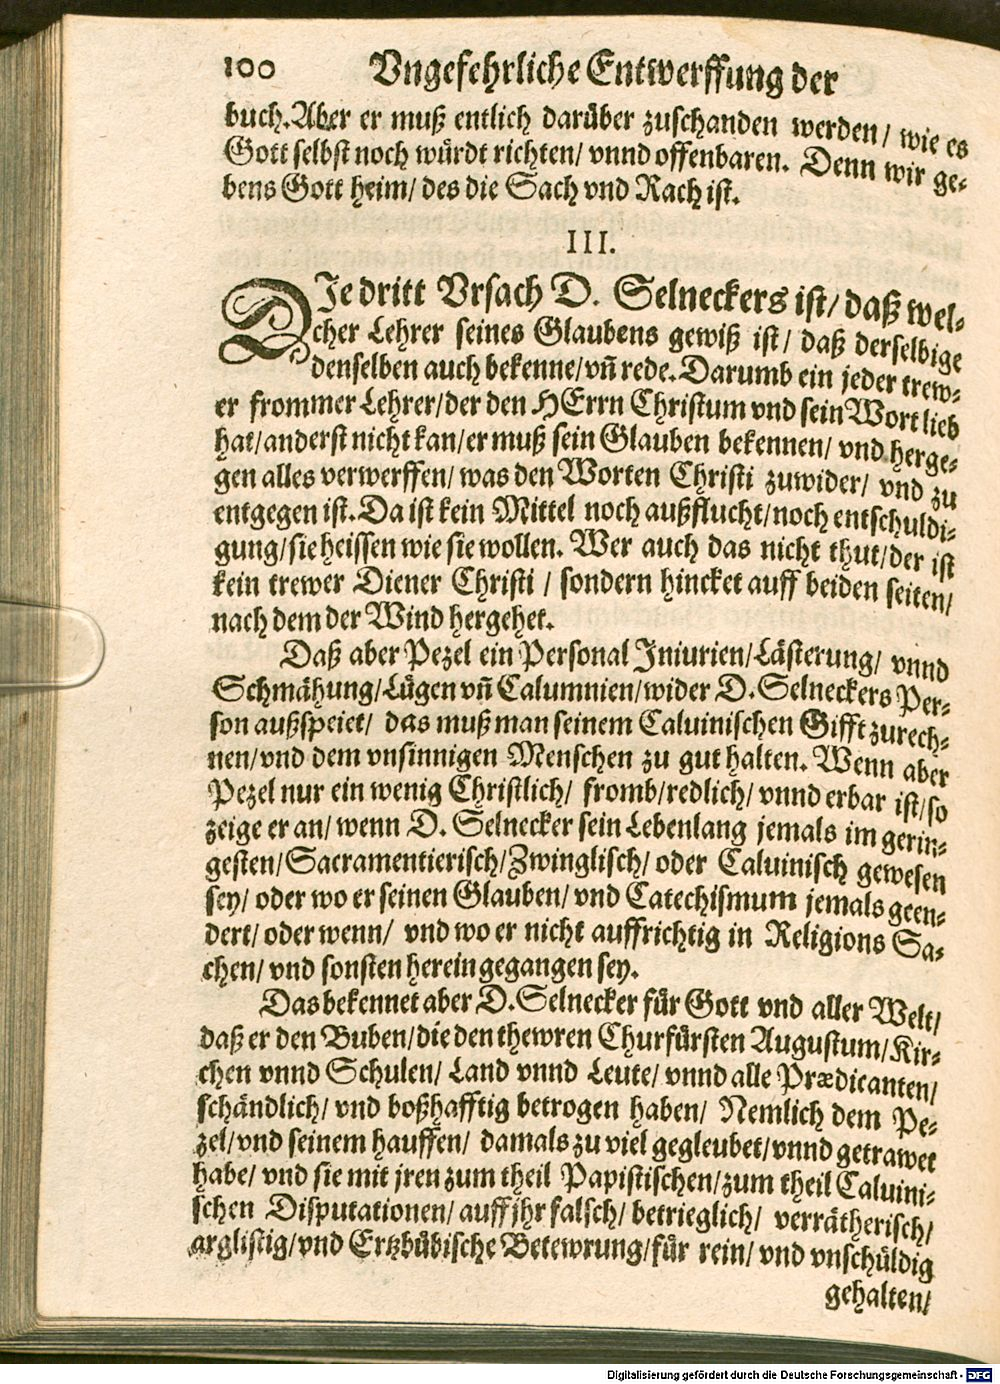 100 Vngefehrliche Entwerffung der
buch. Aber er muß entlich darüber zuschanden werden/ wie es
Gott selbst noch würdt richten/ vnnd offenbaren. Denn wir ge-
bens Gott heim/ des die Sach vnd Rach ist.
III.
DIe dritt Vrsach D. Selneckers ist/ daß wel-
cher Lehrer seines Glaubens gewiß ist/ daß derselbige
denselben auch bekenne/ vñ rede. Darumb ein jeder trew-
er frommer Lehrer/ der den HErrn Christum vnd sein Wort lieb
hat/ anderst nicht kan/ er muß sein Glauben bekennen/ vnd herge-
gen alles verwerffen/ was den Worten Christi zuwider/ vnd zu
entgegen ist. Da ist kein Mittel noch außflucht/ noch entschuldi-
gung/ sie heissen wie sie wollen. Wer auch das nicht thut/ der ist
kein trewer Diener Christi / sondern hincket auff beiden seiten/
nach dem der Wind hergehet.
Daß aber Pezel ein Personal Iniurien/ Lästerung/ vnnd
Schmähung/ Lügen vñ Calumnien/ wider D. Selneckers Per-
son außspeiet/ das muß man seinem Caluinischen Gifft zurech-
nen/ vnd dem vnsinnigen Menschen zu gut halten. Wenn aber
Pezel nur ein wenig Christlich/ fromb/ redlich/ vnnd erbar ist/ so
zeige er an/ wenn D. Selnecker sein Lebenlang jemals im gerin-
gesten/ Sacramentierisch/ Zwinglisch/ oder Caluinisch gewesen
sey/ oder wo er seinen Glauben/ vnd Catechismum jemals geen-
dert/ oder wenn/ vnd wo er nicht auffrichtig in Religions Sa-
chen/ vnd sonsten herein gegangen sey.
Das bekennet aber D. Selnecker für Gott vnd aller Welt/
daß er den Buben/ die den thewren Churfürsten Augustum/ Kir-
chen vnnd Schulen/ Land vnnd Leute/ vnnd alle Prædicanten/
schändlich/ vnd boßhafftig betrogen haben/ Nemlich dem Pe-
zel/ vnd seinem hauffen/ damals zu viel gegleubet/ vnnd getrawet
habe/ vnd sie mit jren zum theil Papistischen/ zum theil Caluini-
schen Disputationen/ auff jhr falsch/ betrieglich/ verrätherisch/
arglistig/ vnd Ertzbübische Betewrung/ für rein/ vnd vnschüldig
gehalten/
Digitalisierung gefördert durch die Deutsche Forschungsgemeinschaft - DFG